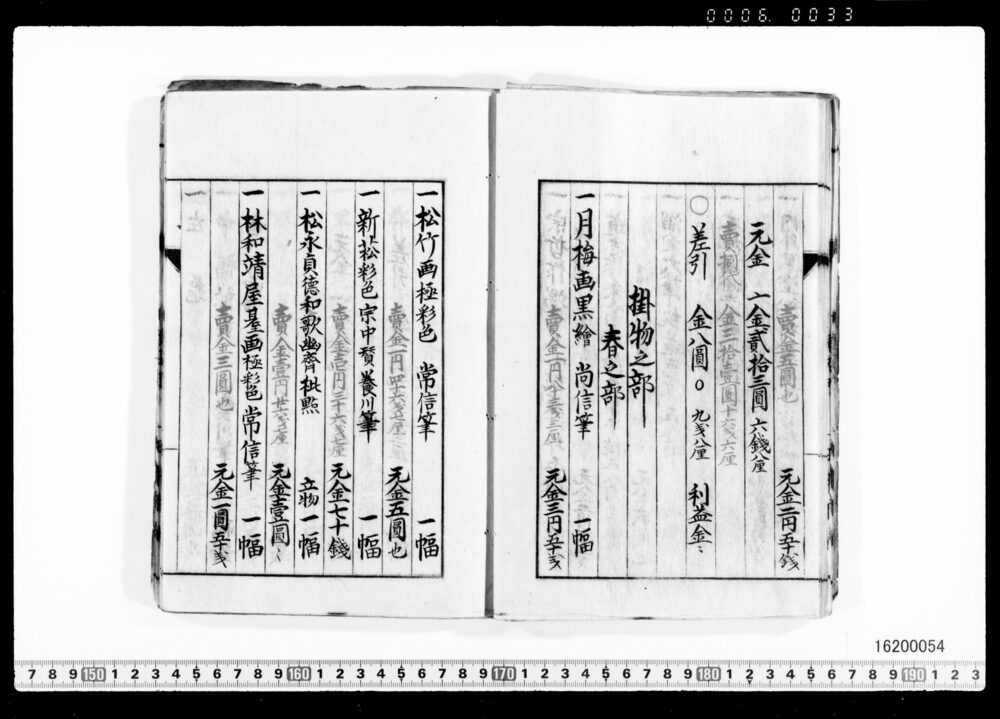 0006. 0033
賣金五圓也 元金二円五十銭
元金 一金貳拾三圓六銭八厘
賣揚代金三拾壹圓十六銭六厘
〇差引 金八圓〇九銭八厘 利益金
掛物之部
春之部
一月梅画黒繪 尚信筆 一幅
元金三円五十銭
一松竹画極彩色 常信筆 一幅
元金五圓也
一新松彩色 宗中賛養川筆 一幅
元金七十銭
一松永貞徳和歌幽齊批㸃 立物一幅
賣金壹円廿六銭厘 元金壹圓
一林和靖屋基画極彩色常信筆 一幅
賣金三圓也 元金一圓五十銭
16200054
7 8 9 150 1 2 3 4 5 6 7 8 9 160 1 2 3 4 5 6 7 8 9 170 1 2 3 4 5 6 7 8 9 180 1 2 3 4 5 6 7 8 9 190 1 2 3